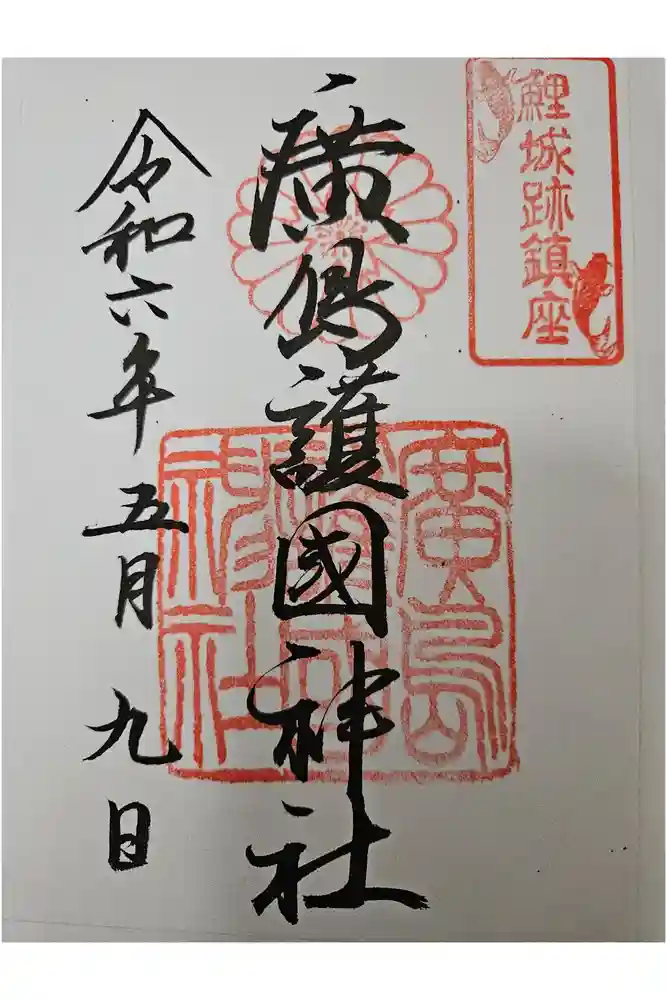 鯉城跡鎮座
廣島護國神社
廣島
護國
神社
令和六年五月九日